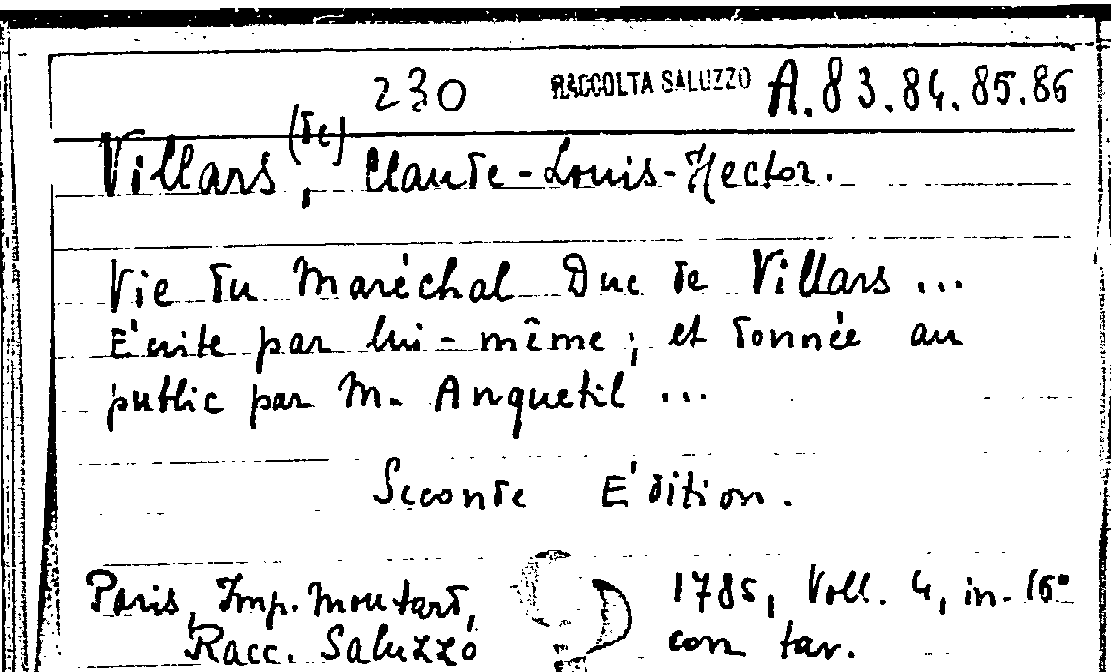 230 RACCOLTA SALUZZO A.83.84.85.86
Villars (de), Claude-Louis-Hector.
Vie du Maréchal Duc de Villars ...
Écrite par lui-même; et donnée au
public par M. Anquetil ...
Seconde Édition.
Paris, Imp. Moutard, 1785, Voll. 4, in-16°
Racc. Saluzzo con tav.